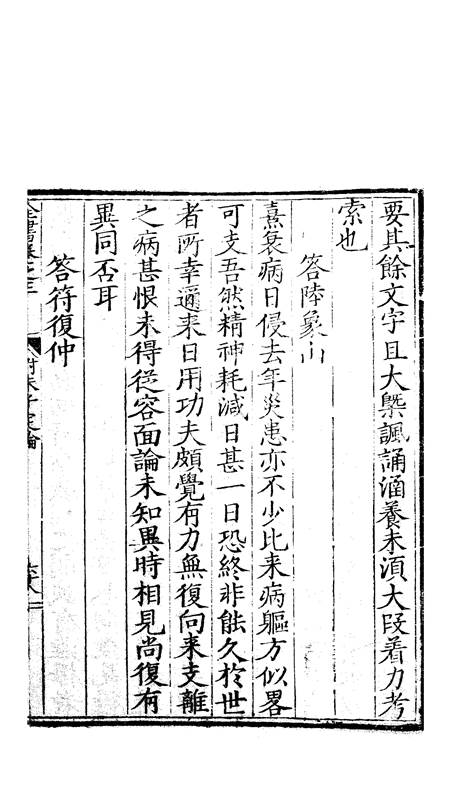 要其餘文字且大槩諷誦涵養未須大段着力考
索也
答陸象山
熹衰病日侵去年災患亦不少比来病軀方似畧
可支吾然精神耗減日甚一日恐終非能久於世
者所幸邇来日用功夫頗覺有力無復向来支離
之病甚恨未得從容面論未知異時相見尚復有
異同否耳
答符復仲
附朱子定論